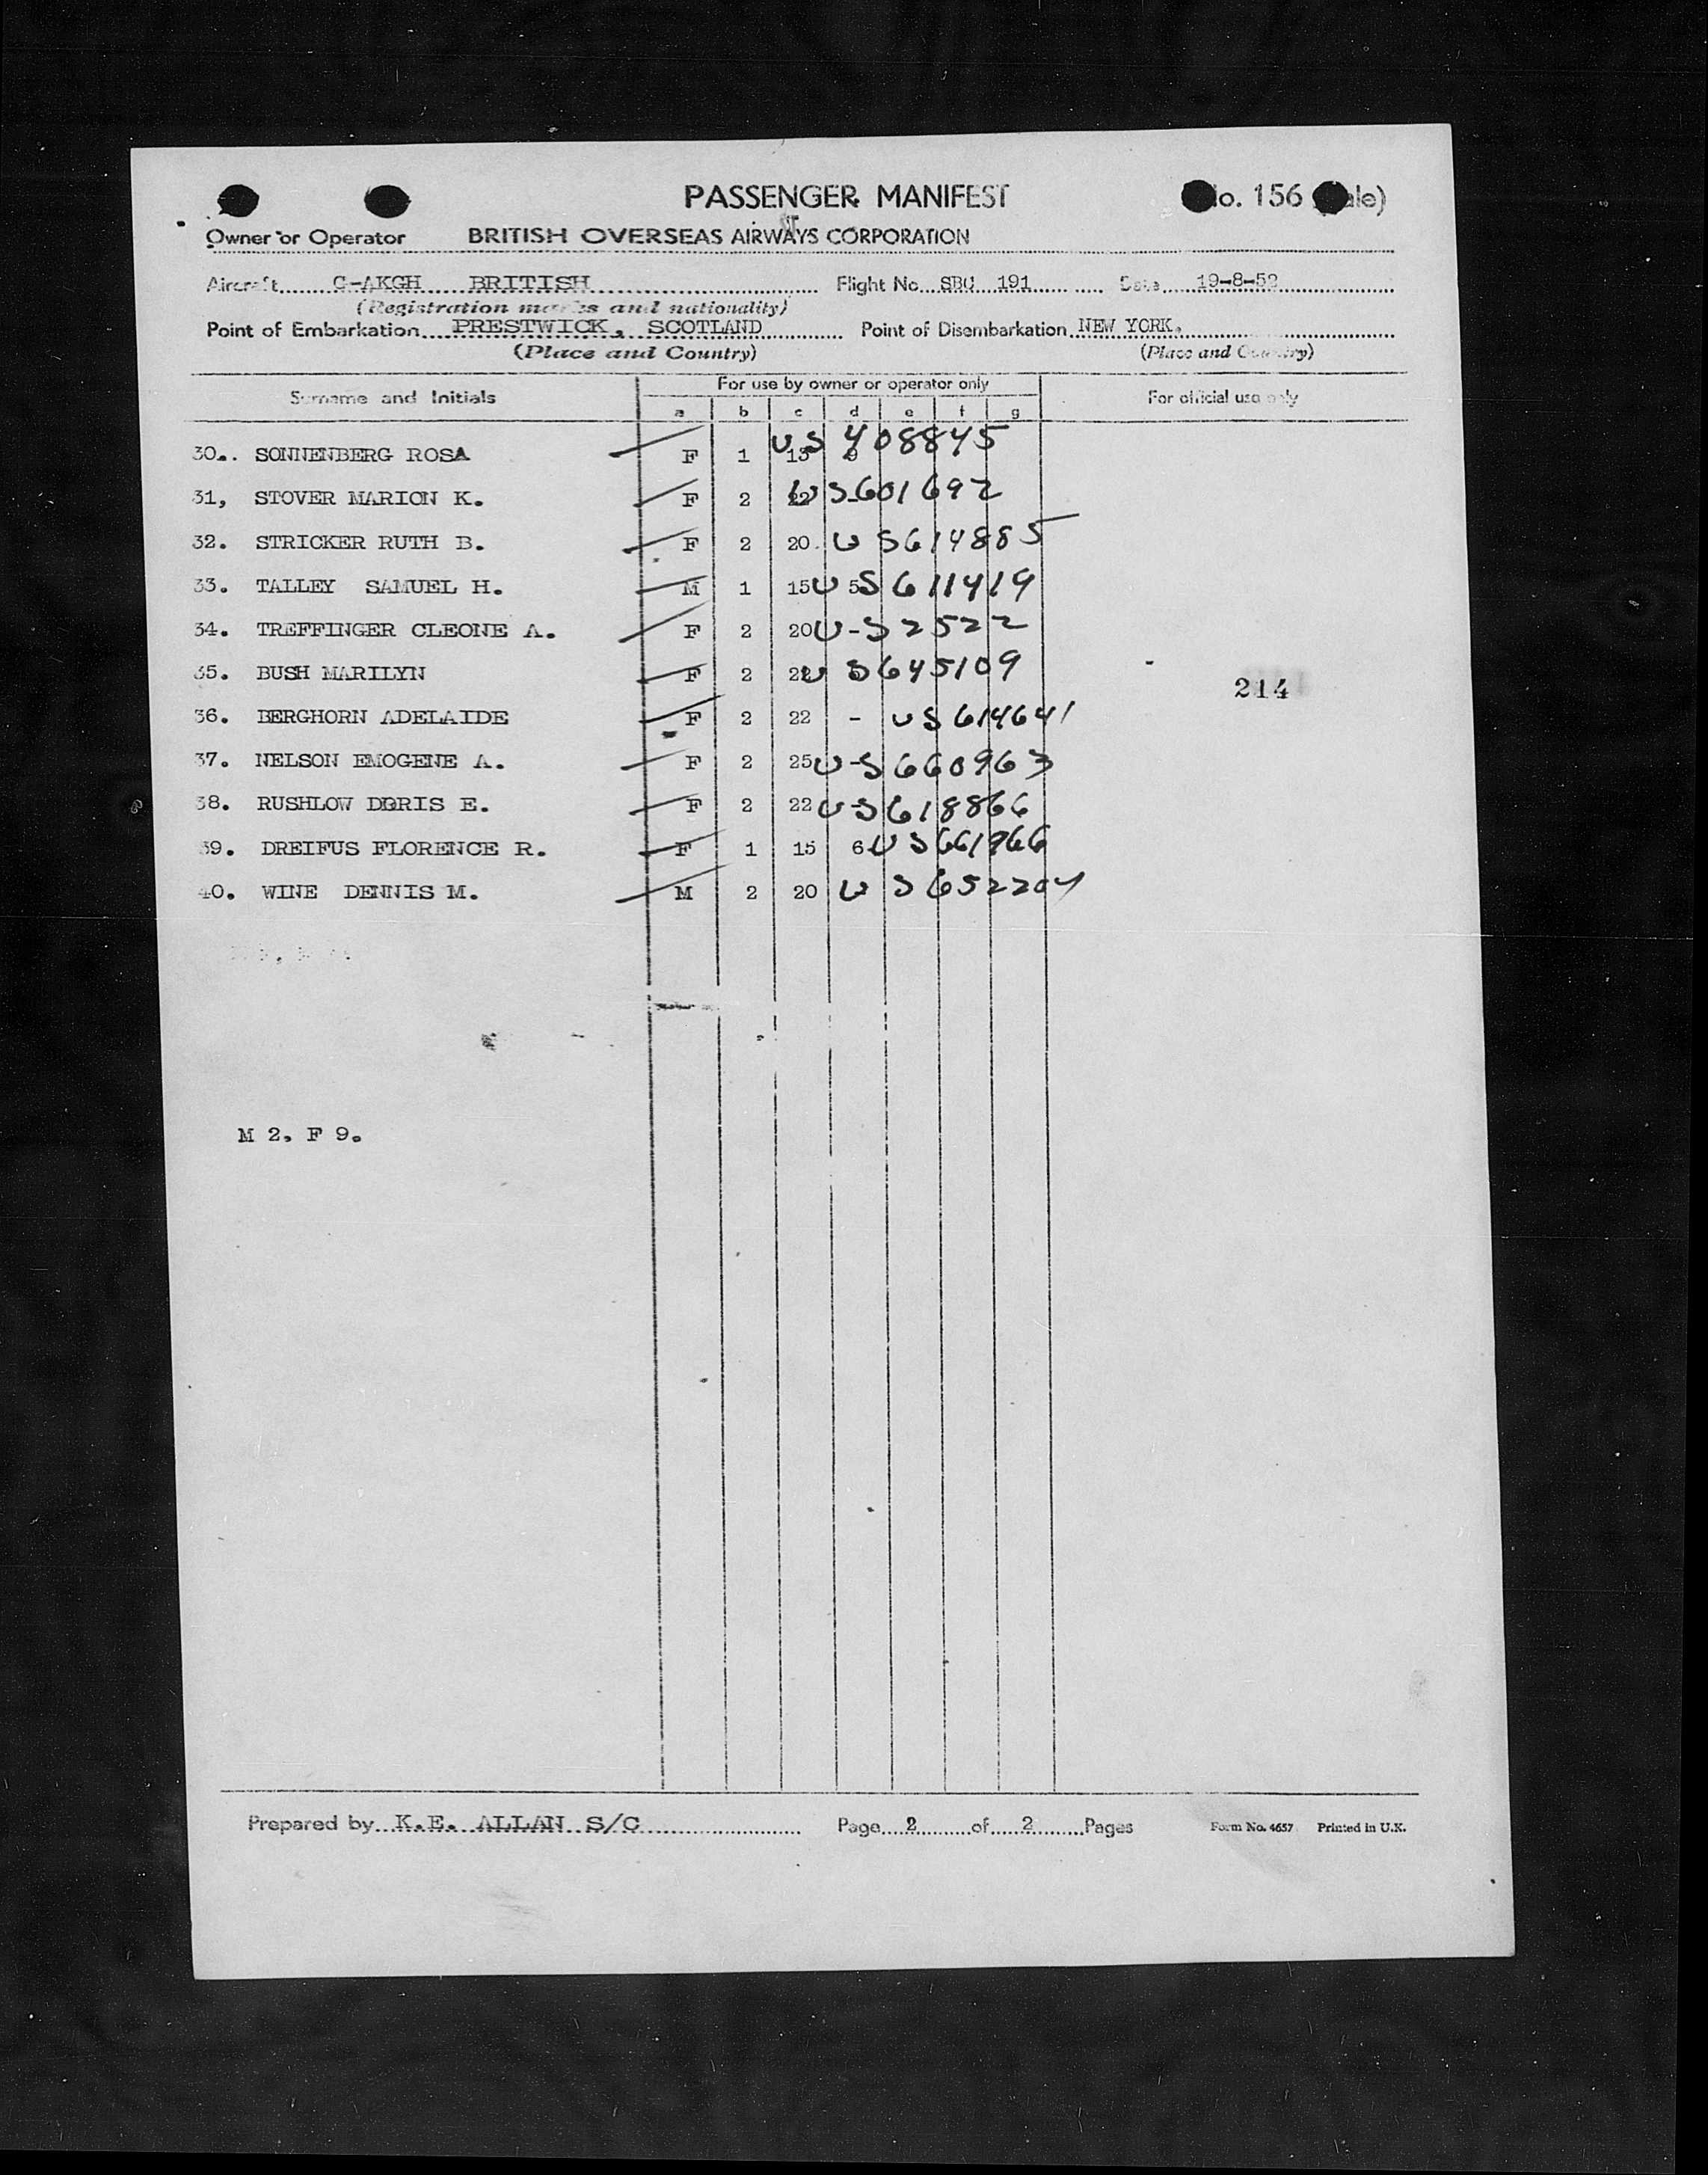 PASSENGER MANIFEST
o. 156 ale)
Owner or Operator BRITISH OVERSEAS AIRWAYS CORPORATION
Aircraft G-AKGH BRITISH Flight No. SBC 191 Date 19-8-52
(Registration marks and nationality)
Point of Embarkation PRESTWICK, SCOTLAND Point of Disembarkation NEW YORK.
(Place and Country) (Place and Country)
Surname and Initials For use by owner or operator only For official use only
a b c d e f g
30.. SONNENBERG ROSA F 1 15 9 US 408845
31, STOVER MARION K. F 2 22 - US601692
32. STRICKER RUTH B. F 2 20. US614885
33. TALLEY SAMUEL H. M 1 15 5 US611419
34. TREFFINGER CLEONE A. F 2 20 - US2522
35. BUSH MARILYN F 2 22 US645109
36. BERGHORN ADELAIDE F 2 22 - US614641
37. NELSON EMOGENE A. F 2 25 - US660963
38. RUSHLOW DORIS E. F 2 22 - US618866
39. DREIFUS FLORENCE R. F 1 15 6 US661966
40. WINE DENNIS M. M 2 20 US652204
214
M 2, F 9.
Prepared by K.E. ALLAN S/C Page 2 of 2 Pages Form No. 4657 Printed in U.K.